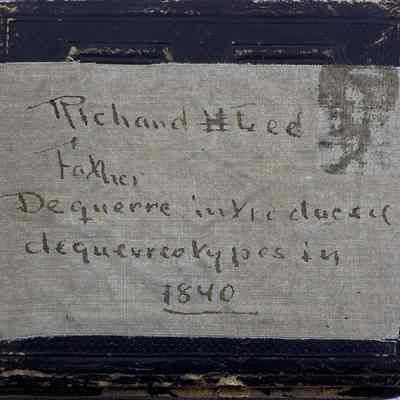 Richard H Lee
father
Dequerre introduced
dequerreotypes in
1840